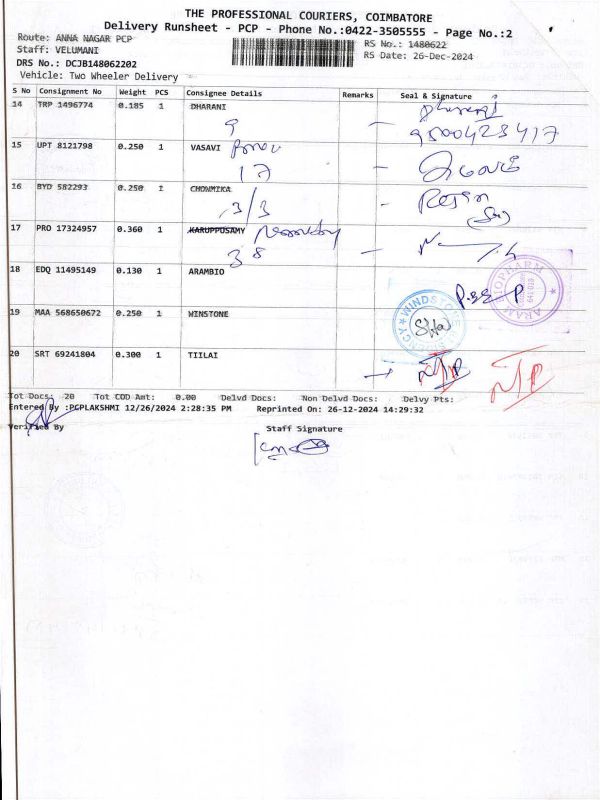 THE PROFESSIONAL COURIERS, COIMBATORE
Delivery Runsheet - PCP - Phone No.:0422-3505555 - Page No.:2
Route: ANNA NAGAR PCP RS No.: 1480622
Staff: VELUMANI RS Date: 26-Dec-2024
DRS No.: DCJB148062202
Vehicle: Two Wheeler Delivery
S No Consignment No Weight PCS Consignee Details Remarks Seal & Signature
14 TRP 1496774 0.185 1 DHARANI
9 9500423417
15 UPT 8121798 0.250 1 VASAVI
17
16 BYD 582293 0.250 1 CHOWMIKA
3/3
17 PRO 17324957 0.360 1 KARUPPUSAMY
38
18 EDQ 11495149 0.130 1 ARAMBIO
19 MAA 568650672 0.250 1 WINSTONE
20 SRT 69241804 0.300 1 TIILAI
N/P N/P
Tot Docs: 20 Tot COD Amt: 0.00 Delvd Docs: Non Delvd Docs: Delvy Pts:
Entered By :PCPLAKSHMI 12/26/2024 2:28:35 PM Reprinted On: 26-12-2024 14:29:32
Verified By Staff Signature